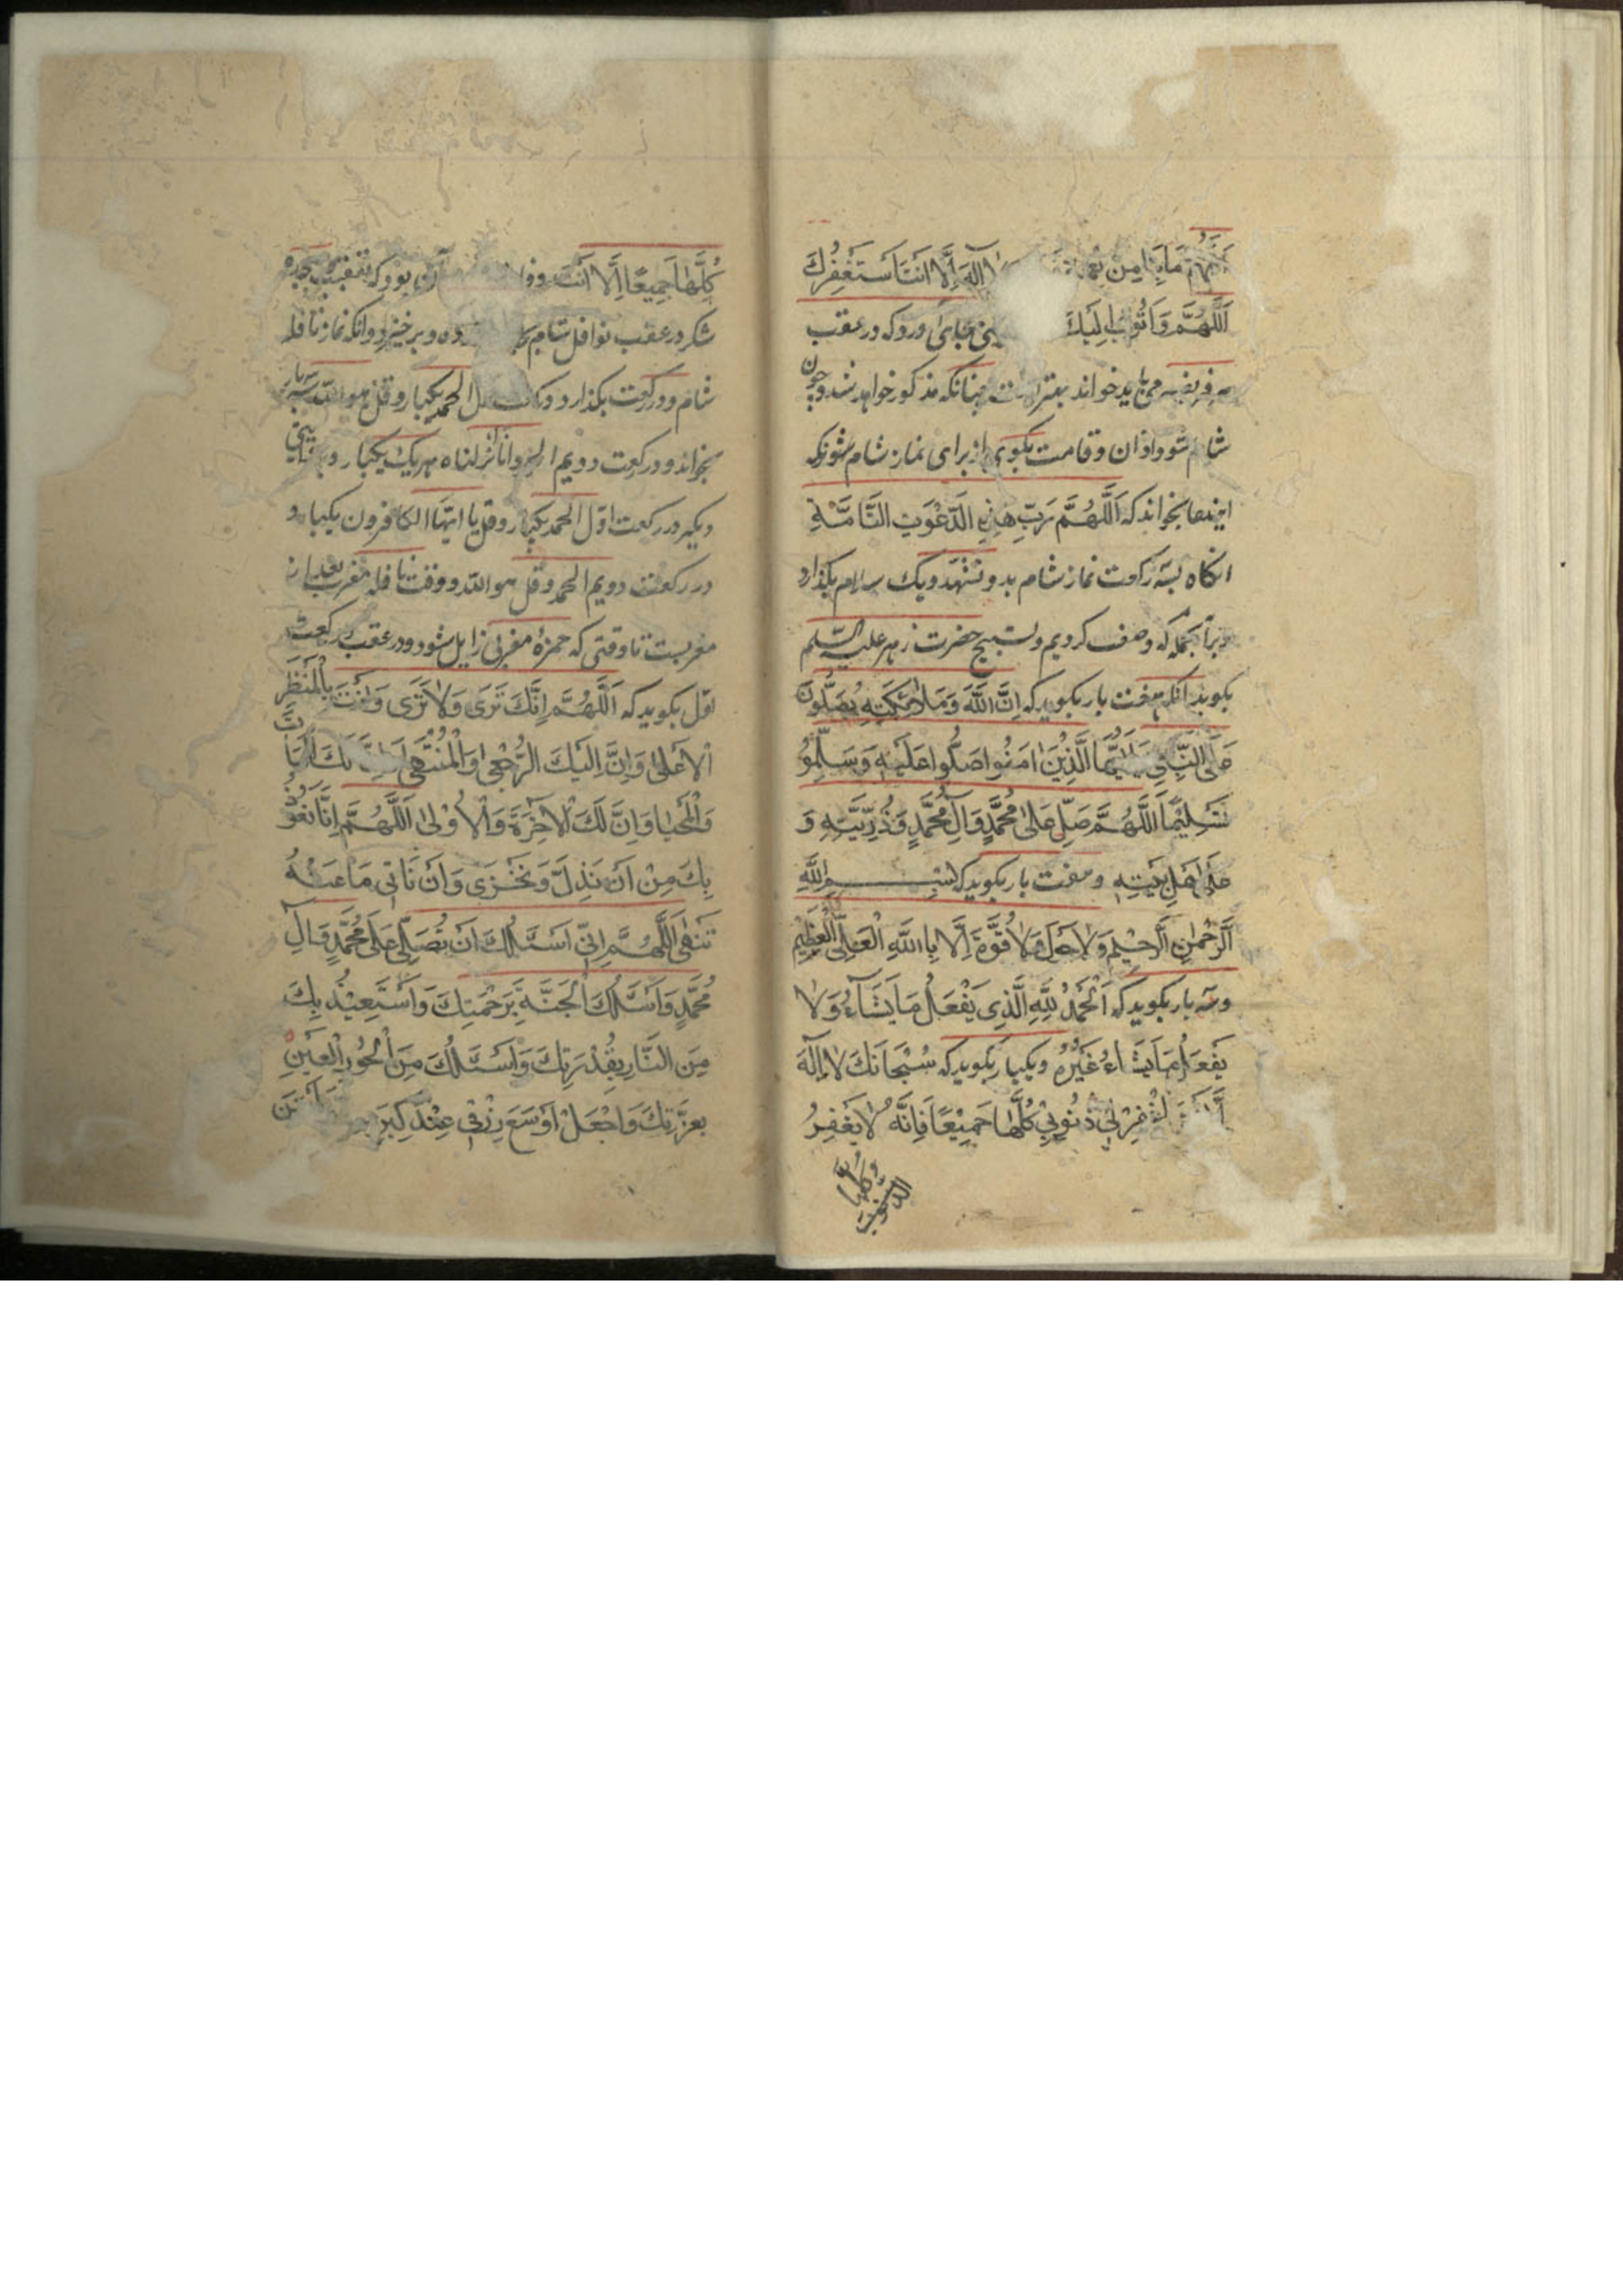 اَللّهُمَّ مَابِنَا مِن اِلهَ اِلَّا اَنتَ اَستَغفِرُكَ
اَللّهُمَّ وَاَتُوبُ اِلَيكَ بجای اورد که در عقب
فریضه می باید خواند چنانکه مذکور خواهد شد و چون
شام شود اذان و قامت بگوی از برای نماز شام
ایندعا بخواند که اَللّهُمَّ رَبِّ هذِهِ الدَّعوَتِ التَّامَّةِ
انکاه بسه رکعت نماز شام بدو تشهد و یک سلام بکذارد
برآنجمله که وصف کردیم و تسبیح حضرت زهر علیه السّلم
بکوید انکه هفت بار بکوید که اِنَّ اللهَ وَمَلائِكَتِهِ يُصَلُّونَ
عَلَى النَّبِيِّ يَا اَيُّهَا الَّذِينَ امَنُوا صَلُّوا عَلَيهِ وَسَلِّمُو
تَسلِيمًا اَللّهُمَّ صَلِّ عَلى مُحَمَّدٍ وَالِ مُحَمَّدٍ وَذُرِّيَّتِهِ وَ
عَلى اَهلِ بَيتِهِ و هفت بار بکوید که بِسمِ اللهِ
الرَّحمنِ الرَّحِيمِ وَلا حَولَ وَلا قُوَّةَ اِلَّا بِاا للهِ العَلِىِّ العَظِيمِ
وسه بار بکوید که اَلحَمدُ لِلّهِ الَّذِى يَفعَلُ مَا يَشَاءُ وَلا
يَفعَلُ مَا يَشَاءُ غَيرُهُ ویکبار بکوید که سُبحَانَكَ لا اِلهَ
اِلَّا اَنتَ اغفِرلِى ذُنُوبِى كُلَّهَا جَمِيعًا فَاِنَّهُ لا يَغفِرُ
الذنوب
كلها
كُلَّهَا جَمِيعًا اِلَّا اَنتَ بود که تعقیب و سجده
شکر در عقب نوافل شام و برخیزد وانکه نماز نافله
شام دو رکعت بکذارد و در رکعت اوّل الحمد یکبار و قل هو الله سه بار
بخواند و در رکعت دویم الحمد و انا انزلناه هریک یکبار و
دیکر در رکعت اوّل الحمد یکبار و قل یا ایّها الکافرون یکبار و
در رکعت دویم الحمد و قل هو الله و وقت نافله مغرب بعد از
مغربست تا وقتی که حمزهٔ مغربی زایل شود و در عقب دو رکعت
اوّل بکوید که اَللّهُمَّ اِنَّكَ تَرَى وَلا تُرَى وَاَنتَ بِالمَنظَرِ
الاَعلى وَاِنَّ اِلَيكَ الرُّجعَى وَالمُنتَهى وَاِنَّ لَكَ المَمَاتَ
وَالمَحيَا وَاِنَّ لَكَ الاخِرَةَ وَالاُولى اَللّهُمَّ اِنَّا نَعُوذُ
بِكَ مِن اَن نَذِلَّ وَنَخزَى وَاَن نَاتِى مَا عَنهُ
تَنهَى اَللّهُمَّ اِنِّى اَسئَلُكَ اَن تُصَلِّىَ عَلى مُحَمَّدٍ وَالِ
مُحَمَّدٍ وَاَسئَلُكَ الجَنَّةَ بِرَحمَتِكَ وَاَستَعِيذُ بِكَ
مِنَ النَّارِ بِقُدرَتِكَ وَاَسئَلُكَ مِنَ الحُورِ العِينِ
بِعِزَّتِكَ وَاجعَل اَوسَعَ رِزقِى عِندَ كِبَرِ